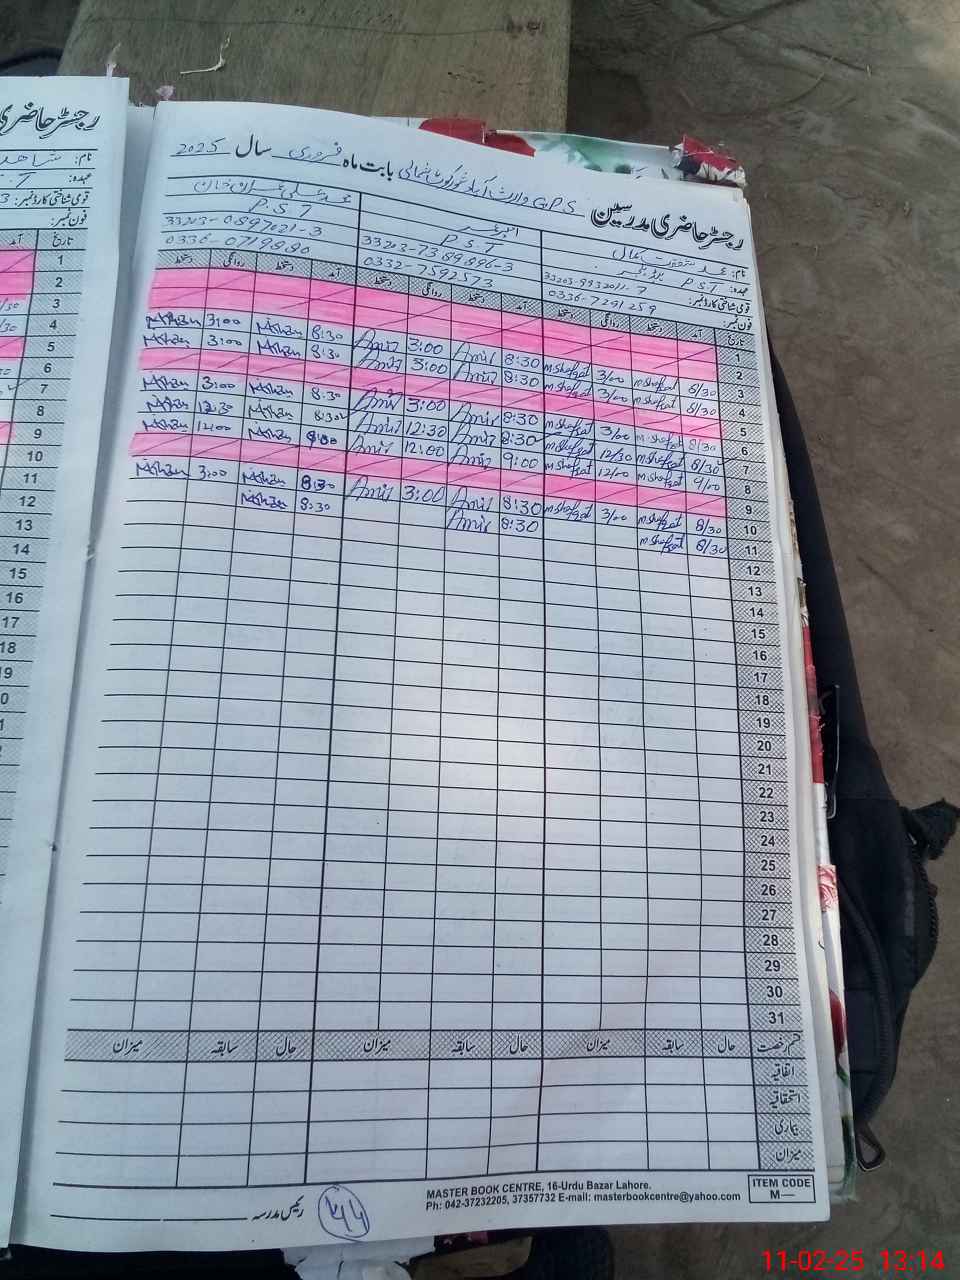 رجسٹر حاضری
نام: شاھد
عہدہ:
قومی شناختی کارڈ نمبر: 3
فون نمبر:
تاریخ آمد
1
2
3
4
5
6
7
8
9
10
11
12
13
14
15
16
17
رجسٹر حاضری مدرسین GPS وارث آباد شورکوٹ شمالی بابت ماہ فروری سال 2025
نام: محمد شفقت کمال امیر عمر محمد علی عمران خان
عہدہ: PST P.S.T P.S.T
قومی شناختی کارڈ نمبر: 33203-9932011-7 33203-7389896-3 33203-0897021-3
فون نمبر: 0336-7291259 0332-7592573 0336-0719890
تاریخ آمد دستخط روانگی دستخط آمد دستخط روانگی دستخط آمد دستخط روانگی دستخط
1
2
3 8/30 m shafqat 3/00 m shafqat 8:30 Amir 3:00 Amir 8:30 3:00
4 8/30 m shafqat 3/00 m shafqat 8:30 Amir 3:00 Amir 8:30 3:00
5
6 8/30 m shafqat 3/00 m shafqat 8:30 Amir 3:00 Amir 8:30 3:00
7 8/30 m shafqat 12/30 m shafqat 8:30 Amir 12:30 Amir 8:30 12:30
8 9/00 m shafqat 12/00 m shafqat 9:00 Amir 12:00 Amir 12:00
9
10 8/30 m shafqat 3/00 m shafqat 8:30 Amir 3:00 Amir 8:30 3:00
11 8/30 m shafqat 8:30 Amir 8:30
12
13
14
15
16
17
18
19
20
21
22
23
24
25
26
27
28
29
30
31
قسم رخصت حال سابقہ میزان حال سابقہ میزان حال سابقہ میزان
اتفاقیہ
استحقاقیہ
بیماری
میزان
رئیس مدرسہ
MASTER BOOK CENTRE, 16-Urdu Bazar Lahore.
Ph: 042-37232205, 37357732 E-mail: masterbookcentre@yahoo.com
ITEM CODE
M—
11-02-25 13:14